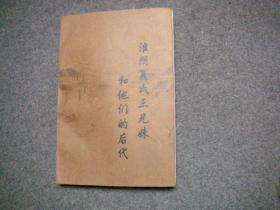 淮阴夏氏三兄妹
和他们的后代